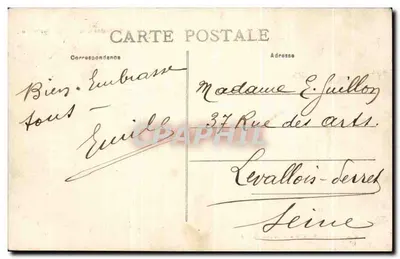 CARTE POSTALE
Correspondance
Adresse
Bien Embrasse
tout –
Emile
Madame E. Guillon
37 Rue des arts.
Levallois-Perret
Seine
CPAPHIL